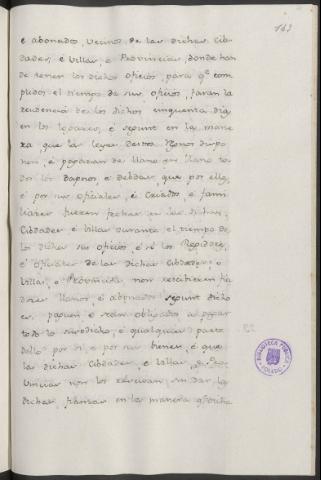 163
é abonados, vecinos de las dichas Cib-
dades, é Villas, é Provincias, donde han
de tener los dichos oficios, para q.e com-
plidos el tiempo de sus oficios, faran la
residencia de los dichos cinquenta dias
en los logares, é segunt en la mane-
ra que las leyes destos Regnos dispo-
nen, é pagaran de llano en llano to-
dos los dapnos é debdas, que por ellos,
é por sus oficiales, é Criados, é fami-
liares fueren fechas en las dichas
Cibdades é Villas durante el tiempo de
los dichos sus oficios é si los Regidores,
é oficiales de las dichas Cibdades, é
Villas, é Provincias non rescibieren fia-
dores llanos, é abonados segunt dicho
es, paguen é sean obligados a pagar
todo lo susodicho, é qualquier parte
dello por si, é por sus bienes, é que
las dichas Cibdades, é Villas, é Pro-
vincias non los resciban, sin dar las
dichas fianzas en la manera
BIBLIOTECA PÚBLICA
TOLEDO